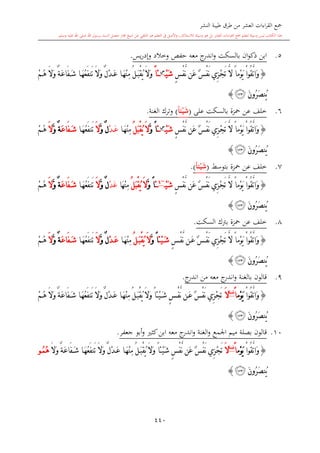 جمع القراءات العشر من طرق طيبة النشر
٥. ابن ذكوان بالسكت واندرج معه حفص وخلاد وإدريس.
﴿ وَٱتَّقُوا۟ يَوْماً لَّا تَجْزِي نَفْسٌ عَن نَّفْسٍ شَيْـًٔا وَلَا يُقْبَلُ مِنْهَا عَدْلٌ وَلَا تَنفَعُهَا شَفَـٰعَةٌ وَلَا هُمْ
يُنصَرُونَ ﴾
٦. خلف عن حمزة بالسكت على (شَيْـًٔا) وترك الغنة.
﴿ وَٱتَّقُوا۟ يَوْماً لَّا تَجْزِي نَفْسٌ عَن نَّفْسٍ شَيْـًٔا وَلَا يُقْبَلُ مِنْهَا عَدْلٌ وَلَا تَنفَعُهَا شَفَـٰعَةٌ وَلَا هُمْ
يُنصَرُونَ ﴾
٧. خلف عن حمزة بتوسط (شَيْـًٔا).
﴿ وَٱتَّقُوا۟ يَوْماً لَّا تَجْزِي نَفْسٌ عَن نَّفْسٍ شَيْـًٔا وَلَا يُقْبَلُ مِنْهَا عَدْلٌ وَلَا تَنفَعُهَا شَفَـٰعَةٌ وَلَا هُمْ
يُنصَرُونَ ﴾
٨. خلف عن حمزة بترك السكت.
﴿ وَٱتَّقُوا۟ يَوْماً لَّا تَجْزِي نَفْسٌ عَن نَّفْسٍ شَيْـًٔا وَلَا يُقْبَلُ مِنْهَا عَدْلٌ وَلَا تَنفَعُهَا شَفَـٰعَةٌ وَلَا هُمْ
يُنصَرُونَ ﴾
٩. قالون بالغنة واندرج معه من اندرج.
﴿ وَٱتَّقُوا۟ يَوْماً لَّا تَجْزِي نَفْسٌ عَن نَّفْسٍ شَيْـًٔا وَلَا يُقْبَلُ مِنْهَا عَدْلٌ وَلَا تَنفَعُهَا شَفَـٰعَةٌ وَلَا هُمْ
يُنصَرُونَ ﴾
١٠. قالون بصلة ميم الجمع والغنة واندرج معه ابن كثير وأبو جعفر.
﴿ وَٱتَّقُوا۟ يَوْماً لَّا تَجْزِي نَفْسٌ عَن نَّفْسٍ شَيْـًٔا وَلَا يُقْبَلُ مِنْهَا عَدْلٌ وَلَا تَنفَعُهَا شَفَـٰعَةٌ وَلَا هُمُو
يُنصَرُونَ ﴾
٤٤٠